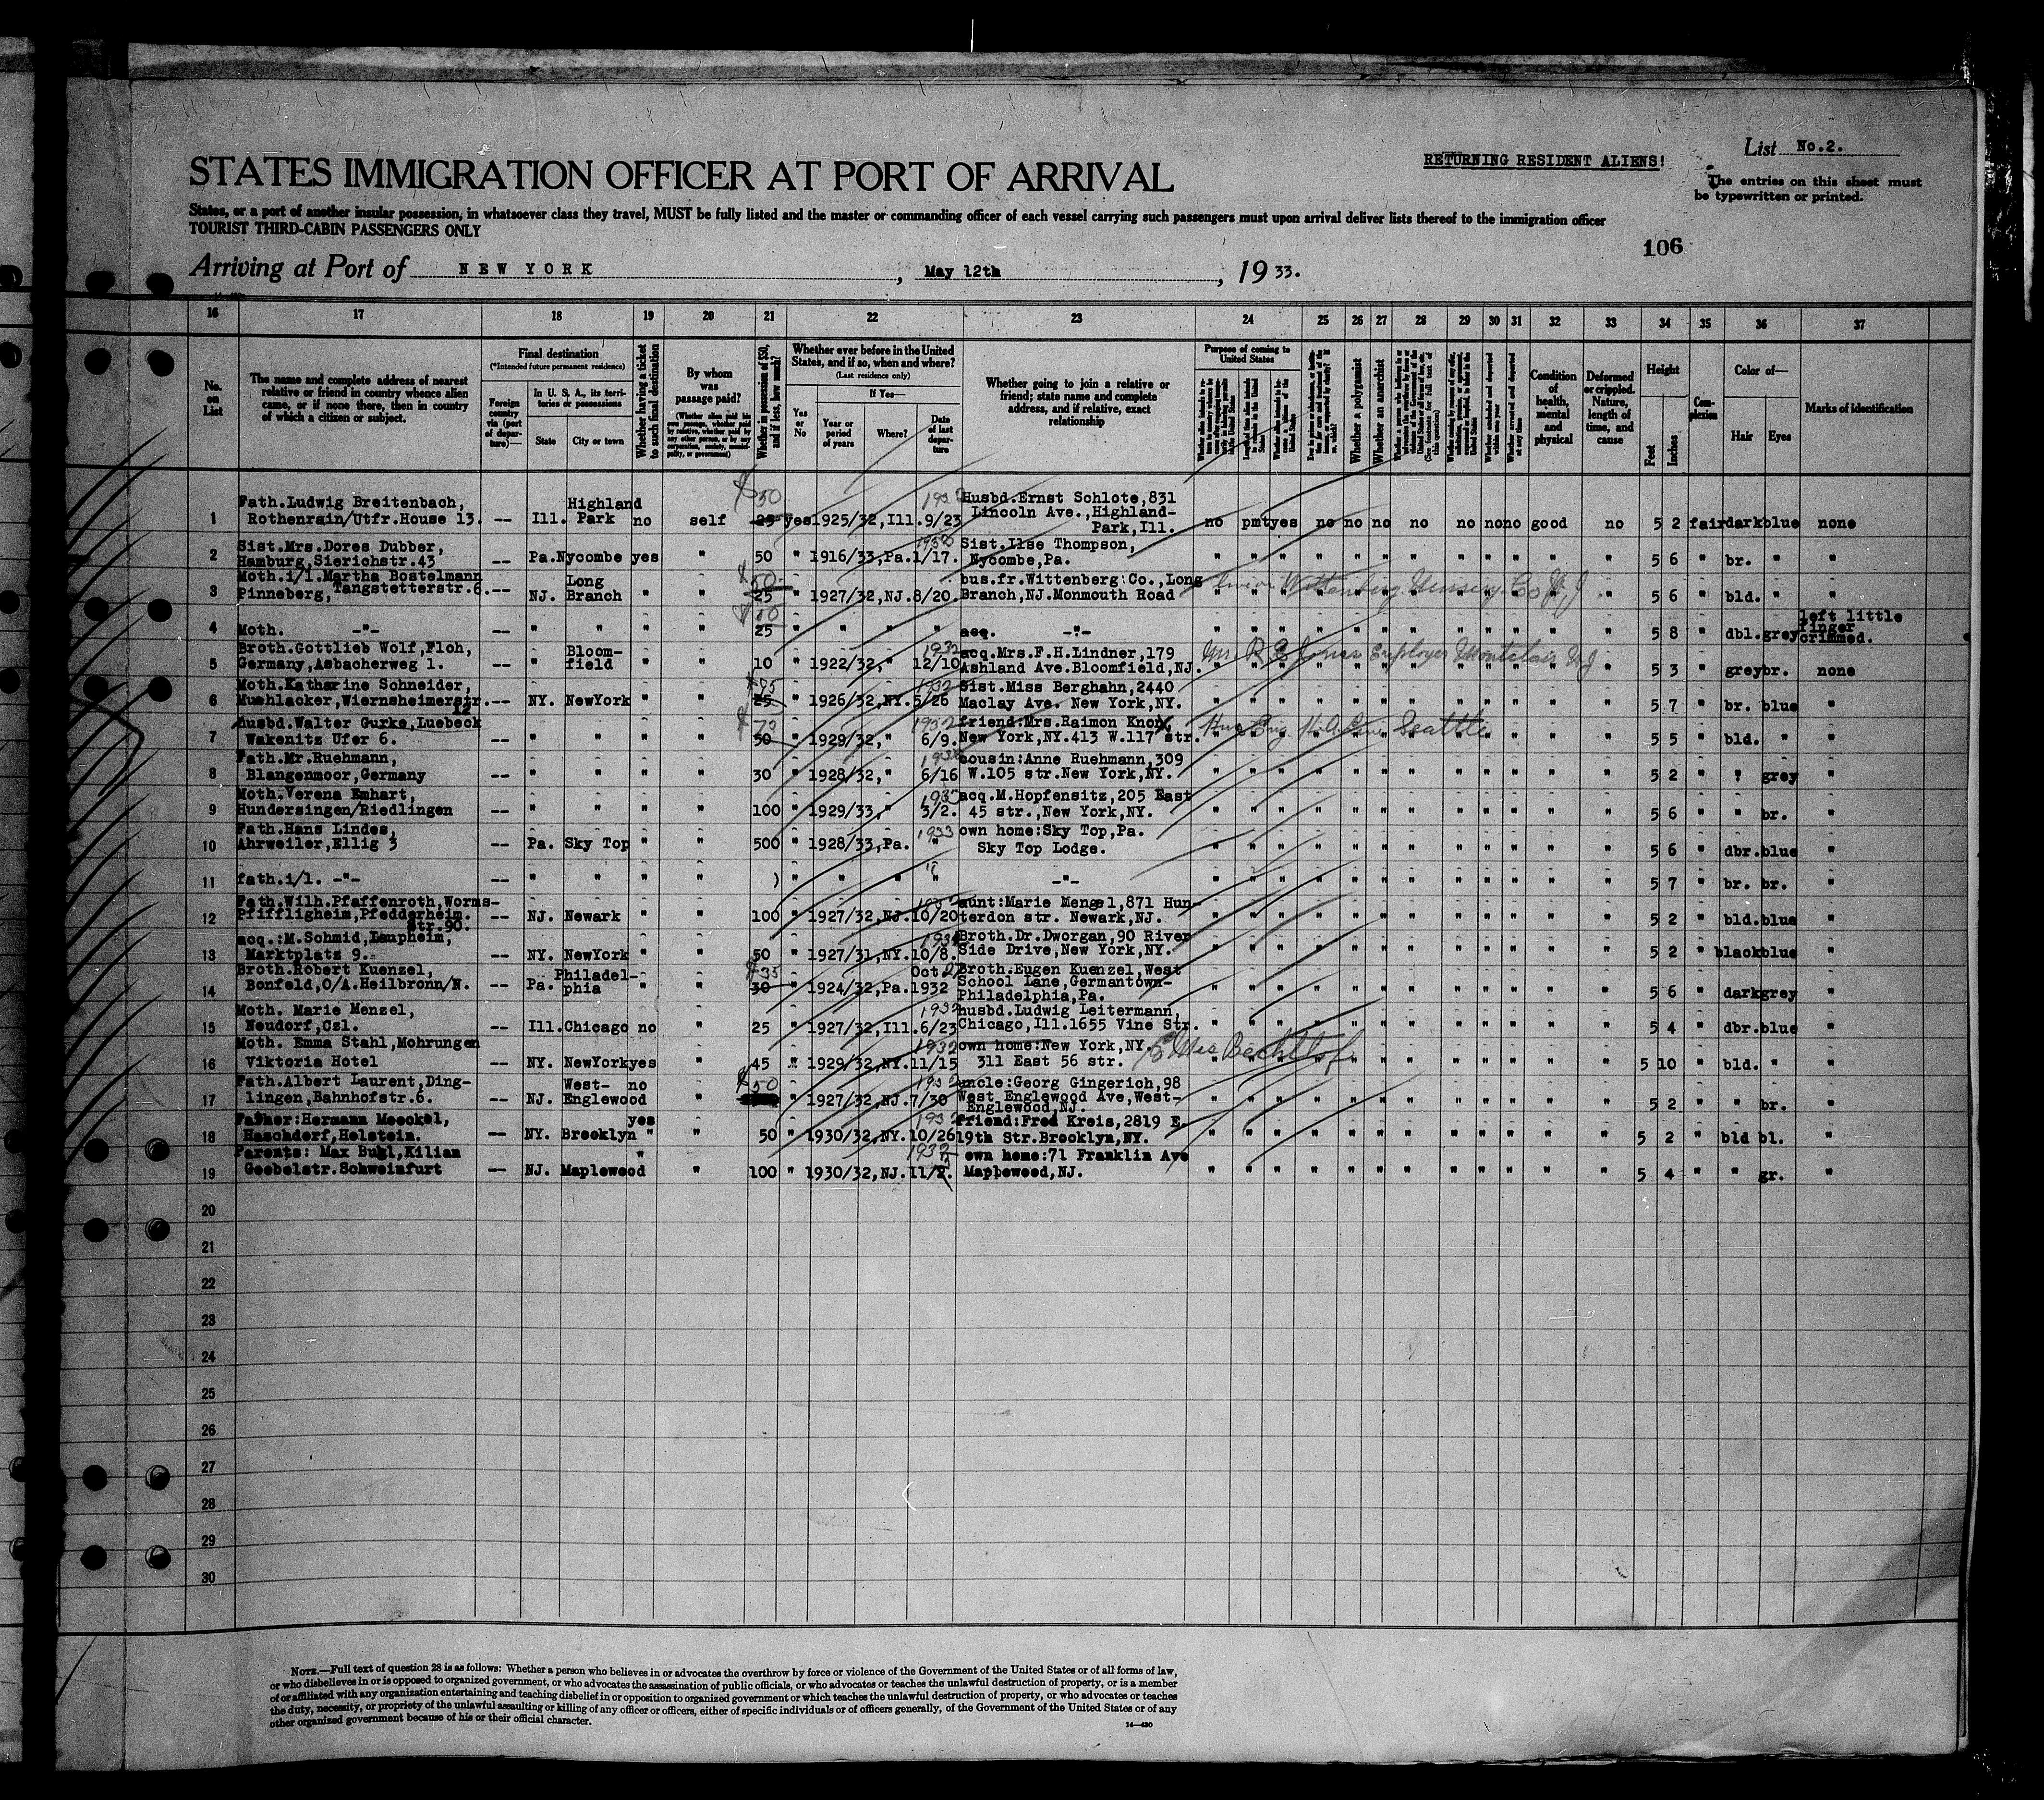 List No.2.
RETURNING RESIDENT ALIENS!
STATES IMMIGRATION OFFICER AT PORT OF ARRIVAL
The entries on this sheet must
be typewritten or printed.
States, or a port of another insular possession, in whatsoever class they travel, MUST be fully listed and the master or commanding officer of each vessel carrying such passengers must upon arrival deliver lists thereof to the immigration officer
TOURIST THIRD-CABIN PASSENGERS ONLY
106
Arriving at Port of NEW YORK, May 12th, 19 33.
16 17 18 19 20 21 22 23 24 25 26 27 28 29 30 31 32 33 34 35 36 37
No. on List
The name and complete address of nearest relative or friend in country whence alien came, or if none there, then in country of which a citizen or subject.
Final destination
(*Intended future permanent residence)
Foreign country via (port of departure)—
In U. S. A., its territories or possessions
State City or town
Whether having a ticket to such final destination
By whom was passage paid?
Whether in possession of $50, and if less, how much?
Whether ever before in the United States, and if so, when and where?
(Last residence only)
Yes or No
If Yes—
Year or period of years
Where?
Date of last departure
Whether going to join a relative or friend; state name and complete address, and if relative, exact relationship
Purpose of coming to United States
Whether a polygamist
Whether an anarchist
Condition of health, mental and physical
Deformed or crippled. Nature, length of time, and cause
Height
Feet Inches
Complexion
Color of—
Hair Eyes
Marks of identification
1 Fath.Ludwig Breitenbach, Rothenrain/Utfr.House 13. -- Ill. Highland Park no self $50 25 yes 1925/32,Ill. 9/23 Husbd.Ernst Schlote,831 Lincoln Ave.,Highland-Park,Ill. no pmt yes no no no no no no no good no 5 2 fair dark blue none
2 Sist.Mrs.Dores Dubber, Hamburg,Sierichstr.43 -- Pa. Nycombe yes " 50 " 1916/33,Pa. 1/17. Sist.Ilse Thompson, Nycombe,Pa. " " " " " " " " " " " " 5 6 " br. " "
3 Moth.i/l.Martha Bostelmann Pinneberg,Tangstetterstr.6. -- NJ. Long Branch " " $50 25 " 1927/32,NJ. 8/20. bus.fr.Wittenberg Co.,Long Branch,NJ.Monmouth Road 5 6 " bld. " "
4 Moth. -"- -- " " " " 25 " " " " acq. -"- 5 8 " dbl. grey left little finger crimmed.
5 Broth.Gottlieb Wolf,Floh, Germany,Asbacherweg 1. -- " Bloom-field " " 10 " 1922/32," 1932 12/10 acq.Mrs.F.H.Lindner,179 Ashland Ave.Bloomfield,NJ. Employer Montclair NJ 5 3 " grey br. none
6 Moth.Katharine Schneider, Muehlacker,Wiernsheimerstr. 12 -- NY. NewYork " " 25 " 1926/32,NY. 1932 5/26 Sist.Miss Berghahn,2440 Maclay Ave. New York,NY. 5 7 " br. blue "
7 husbd.Walter Gurke,Luebeck Wakenitz Ufer 6. -- " " " " 50 " 1929/32," 1932 6/9. friend:Mrs.Raimon Knox, New York,NY.413 W.117 str. Seattle 5 5 " bld. " "
8 Fath.Mr.Ruehmann, Blangenmoor,Germany -- " " " " 30 " 1928/32," 6/16 cousin:Anne Ruehmann,309 W.105 str.New York,NY. 5 2 " " grey "
9 Moth.Verena Emhart, Hundersingen/Riedlingen -- " " " " 100 " 1929/33," 3/2. acq.M.Hopfensitz,205 East 45 str.,New York,NY. 5 6 " " br. "
10 Fath.Hans Lindes, Ahrweiler,Ellig 3 -- Pa. Sky Top " " 500 " 1928/33,Pa. 1933 " own home:Sky Top,Pa. Sky Top Lodge. 5 6 " dbr. blue "
11 fath.i/l. -"- -- " " " " ) " " " " -"- 5 7 " br. br. "
12 Fath.Wilh.Pfaffenroth,Worms-Pfiffligheim,Pfedderheim. Str.90. -- NJ. Newark " " 100 " 1927/32,NJ. 10/20 aunt:Marie Mengel,871 Hunterdon str. Newark,NJ. 5 2 " bld. blue "
13 acq.:M.Schmid,Laupheim, Marktplatz 9. -- NY. NewYork " " 50 " 1927/31,NY. 10/8. Broth.Dr.Dworgan,90 River Side Drive,New York,NY. 5 2 " black blue "
14 Broth.Robert Kuenzel, Bonfeld,O/A.Heilbronn/N. -- Pa. Philadel-phia " " $35 30 " 1924/32,Pa. Oct 1932 Broth.Eugen Kuenzel,West School Lane,Germantown-Philadelphia,Pa. 5 6 " dark grey "
15 Moth. Marie Menzel, Neudorf,Czl. -- Ill. Chicago no " 25 " 1927/32,Ill. 1932 6/23 husbd.Ludwig Leitermann, Chicago,Ill.1655 Vine Str. 5 4 " dbr. blue "
16 Moth. Emma Stahl,Mohrungen Viktoria Hotel -- NY. NewYork yes " 45 " 1929/32,NY. 1932 11/15 own home:New York,NY. 311 East 56 str. 5 10 " bld. " "
17 Fath.Albert Laurent,Ding-lingen,Bahnhofstr.6. -- NJ. West-Englewood no " $50 " 1927/32,NJ. 1932 7/30 uncle:Georg Gingerich,98 West Englewood Ave,West-Englewood,NJ. 5 2 " " br. "
18 Father:Hermann Meeckel, Haschdorf,Holstein. -- NY. Brooklyn yes " " 50 " 1930/32,NY. 1932 10/26 friend:Fred Kreis,2819 E. 19th Str.Brooklyn,NY. 5 2 " bld bl. "
19 Parents: Max Bukl,Kilian Goebelstr.Schweinfurt -- NJ. Maplewood " " 100 " 1930/32,NJ. 1932 11/2. own home:71 Franklin Ave Maplewood,NJ. 5 4 " " gr. "
20
21
22
23
24
25
26
27
28
29
30
NOTE.—Full text of question 28 is as follows: Whether a person who believes in or advocates the overthrow by force or violence of the Government of the United States or of all forms of law,
or who disbelieves in or is opposed to organized government, or who advocates the assassination of public officials, or who advocates or teaches the unlawful destruction of property, or is a member
of or affiliated with any organization entertaining and teaching disbelief in or opposition to organized government or which teaches the unlawful destruction of property, or who advocates or teaches
the duty, necessity, or propriety of the unlawful assaulting or killing of any officer or officers, either of specific individuals or of officers generally, of the Government of the United States or of any
other organized government because of his or their official character.
14—430